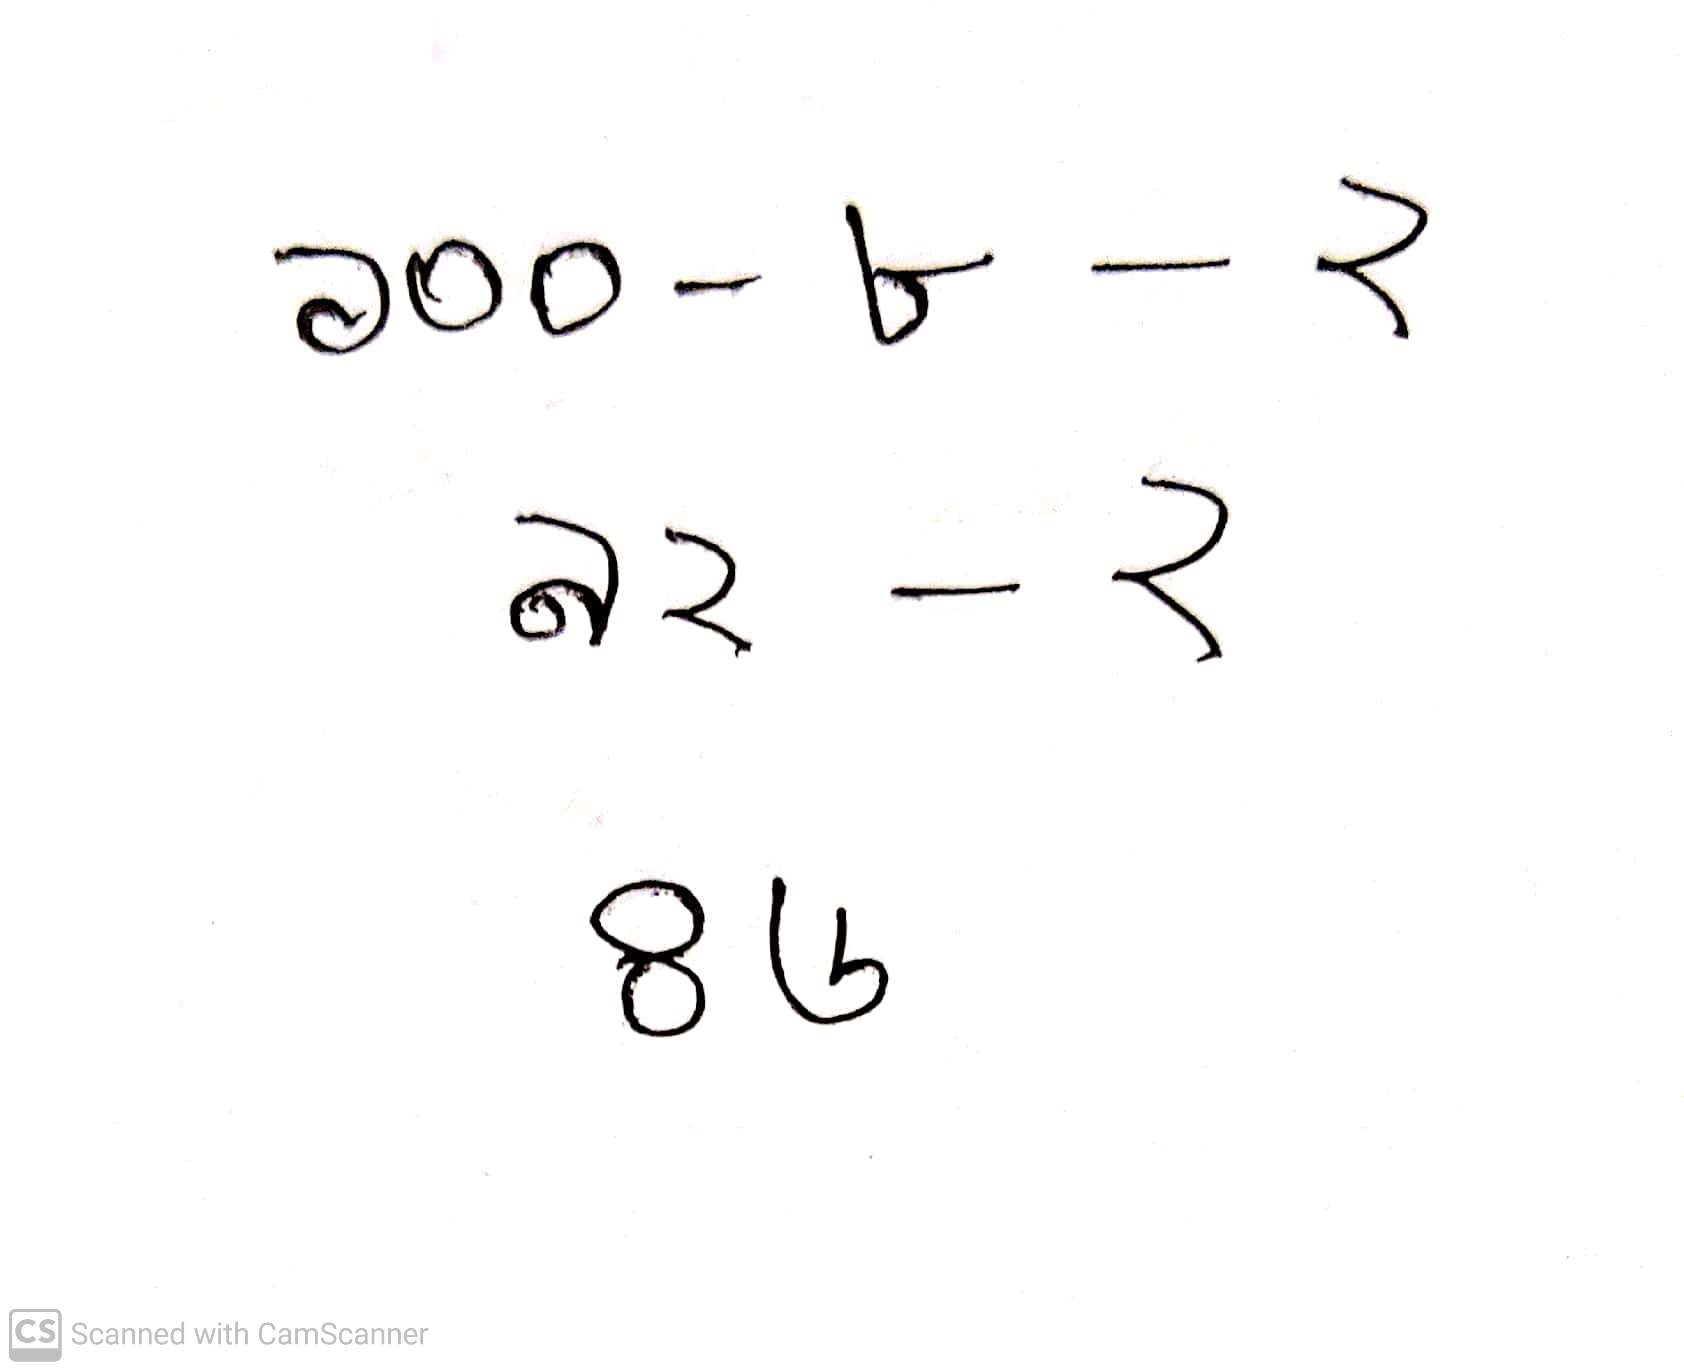 ১০০ - ৮ - ২
৯২ - ২
৪৬
CS Scanned with CamScanner